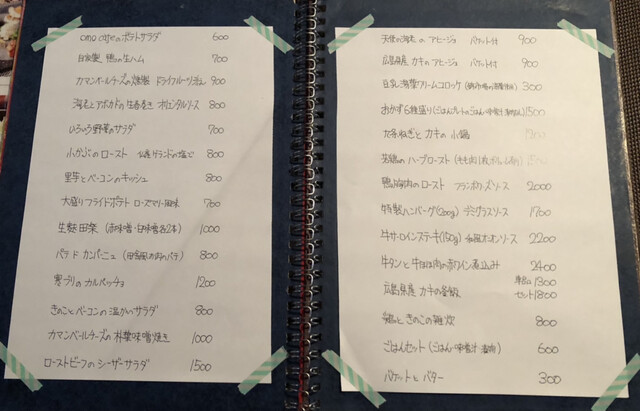 omo cafeのポテトサラダ 600
自家製 鴨の生ハム 700
カマンベールチーズの燻製 ドライフルーツ添え 900
海老とアボカドの生春巻き オリエンタルソース 800
いろいろ野菜のサラダ 700
小かぶのロースト ゲランドの塩で 800
里芋とベーコンのキッシュ 800
大盛りフライドポテト ローズマリー風味 700
生麩田楽 (赤味噌・白味噌各2本) 1000
パテ ド カンパーニュ (田舎風お肉のパテ) 800
寒ブリのカルパッチョ 1200
きのことベーコンの温かいサラダ 800
カマンベールチーズの朴葉味噌焼き 1000
ローストビーフのシーザーサラダ 1500
天使の海老のアヒージョ バケット付 900
広島県産 カキのアヒージョ バケット付 900
豆乳湯葉クリームコロッケ 300
おかずら種盛り 1500
たまねぎとカキの小鍋
若鶏のハーブロースト
鴨胸肉のロースト フランボワーズソース 2000
特製ハンバーグ(200g) デミグラスソース 1700
牛サーロインステーキ(150g) 和風オニオンソース 2200
牛タンと牛ほほ肉の赤ワイン煮込み 2400
広島県産 カキの釜飯 単品 1300
セット 1800
鶏ときのこの雑炊 800
ごはんセット (ごはん・味噌汁・漬物) 600
バケットとバター 300